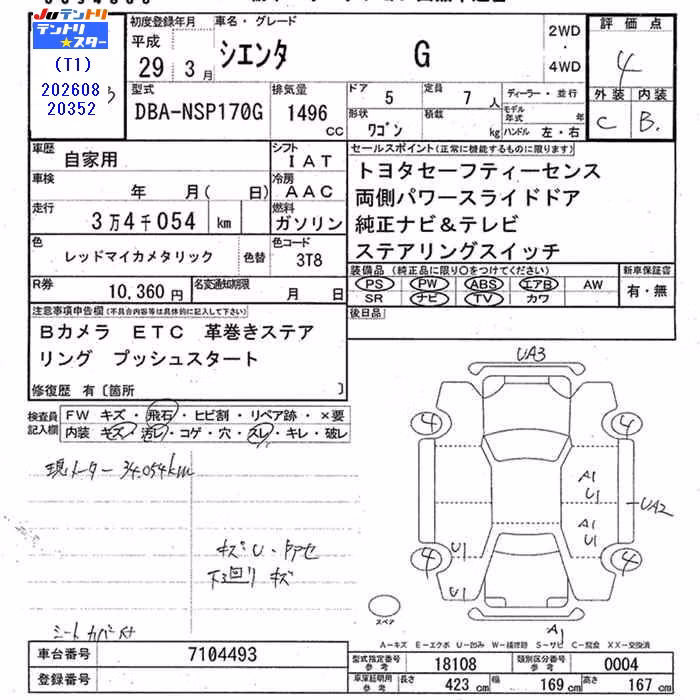 JUテントリ
テントリ★スター
(T1)
202608
20352
初度登録年月
平成
29年3月
車名・グレード
シエンタ G
2WD
・
4WD
評価点
4
外装 内装
C B.
型式
DBA-NSP170G
排気量
1496
CC
ドア
5
定員
7人
形状
ワゴン
積載
kg
ディーラー・並行
モデル年式 年
ハンドル 左・右
車歴
自家用
シフト
IAT
車検
年 月( 日)
冷房
AAC
走行
3万4千054 km
燃料
ガソリン
色
レッドマイカメタリック
色替
色コード
3T8
R券
10,360円
名変通知期限
月 日
セールスポイント(正常に機能するものに限ります)
トヨタセーフティーセンス
両側パワースライドドア
純正ナビ&テレビ
ステアリングスイッチ
装備品(純正品に限り○をつけてください)
PS PW ABS エアB AW
SR ナビ TV カワ
新車保証書
有・無
後日品
注意事項申告欄(不具合内容等は具体的に記入して下さい)
Bカメラ ETC 革巻きステア
リング プッシュスタート
修復歴 有〔箇所 〕
検査員
記入欄
FW キズ・飛石・ヒビ割・リペア跡・×要
内装 キズ・汚レ・コゲ・穴・スレ・キレ・破レ
現メーター 34.054km
キズU・アセ
下廻り キズ
シートカバー付
UA3
4
4
A1
U1
UA2
A1
U1
4
U1
4
U1
スペア
A1
A-キズ E-エクボ U-凹み W-補修跡 S-サビ C-腐食 XX-交換済
車台番号
7104493
登録番号
型式指定番号
参考
18108
類別区分番号
参考
0004
車庫証明用
参考
長さ 423 cm
幅 169 cm
高さ 167 cm